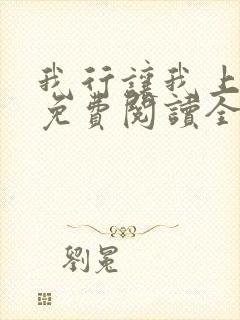 我行讓我上
免費閱讀全
劉冕